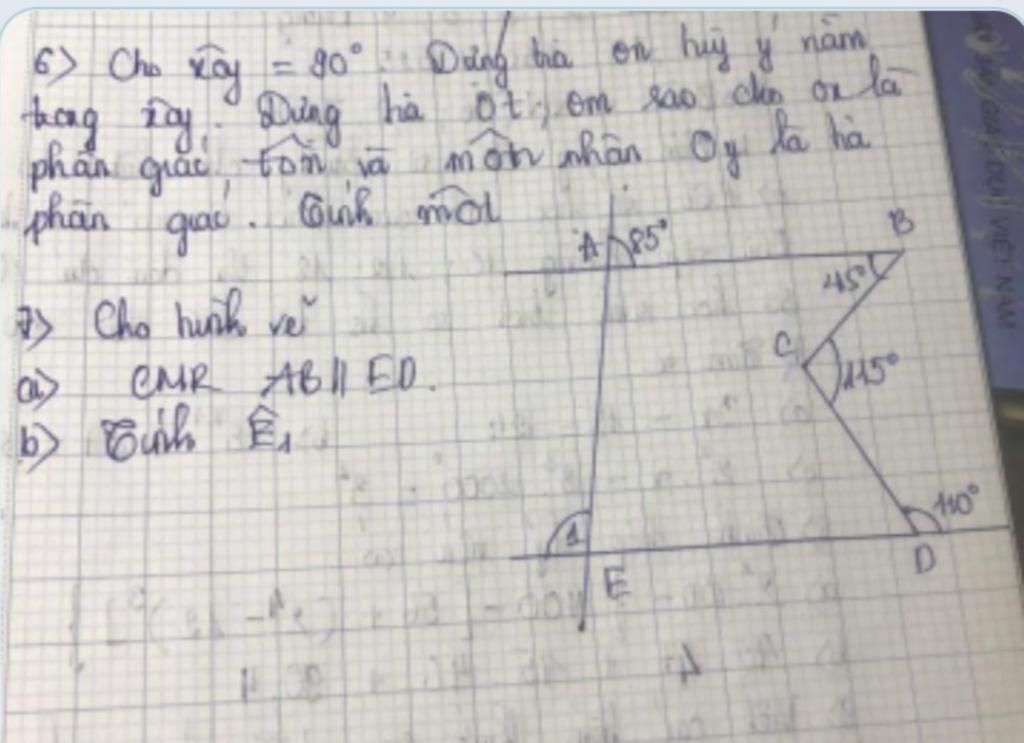 6) Cho xôy = 90° Dựng tia on tuỳ ý nằm
trong xôy. Dựng tia Ot, om sao cho ox là
phân giác tôn và môn nhận Oy là tia
phân giác. Tính môt
7) Cho hình vẽ
a) CMR AB // ED.
b) Tính Ê1
A 85°
B
45°
C
115°
110°
1
E
D
GIÁO DỤC VIỆT NAM